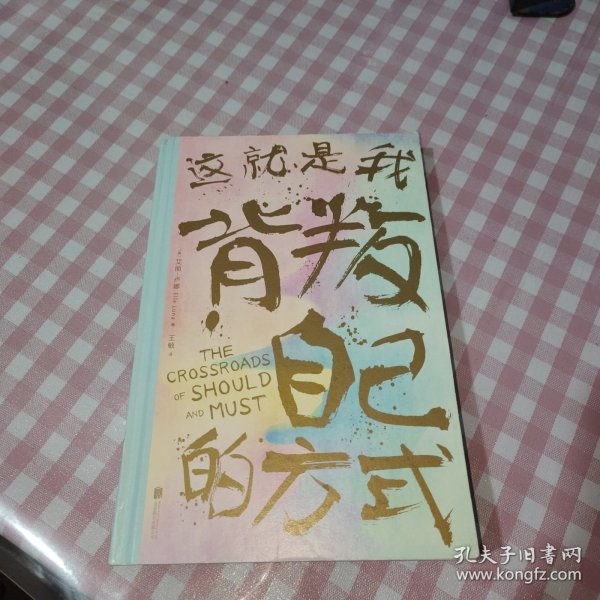 这就是我
背叛
自己
的方式
THE
CROSSROADS
OF SHOULD
AND MUST
[美] 艾丽·卢娜 Elle Luna 著
王敏 译
孔夫子旧书网
www.kongfz.com